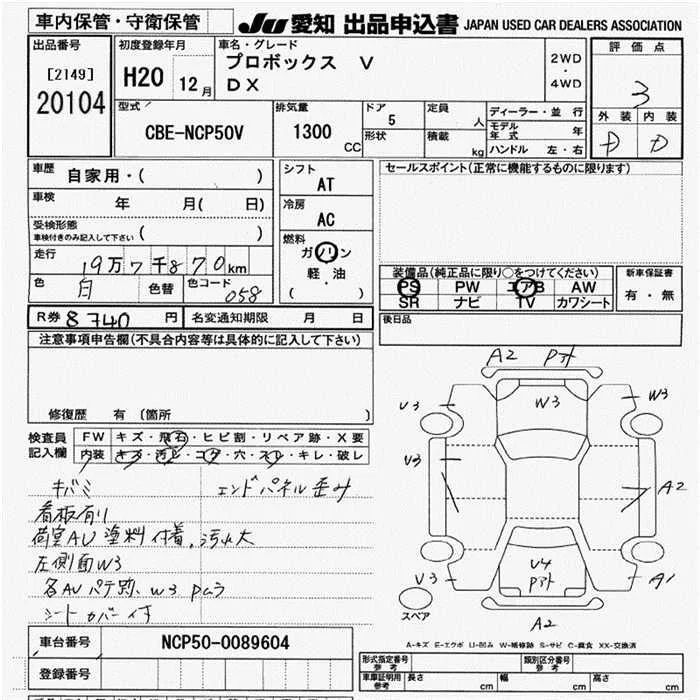 車内保管・守衛保管
JU 愛知 出品申込書 JAPAN USED CAR DEALERS ASSOCIATION
出品番号
[2149]
20104
初度登録年月
H20 12月
車名・グレード
プロボックス V
DX
2WD
・
4WD
評価点
3
外装 内装
D D
型式
CBE-NCP50V
排気量
1300 CC
ドア
5
形状
定員
人
積載
kg
ディーラー・並行
モデル年式 年
ハンドル 左・右
車歴 自家用・( )
車検 年 月( 日)
受検形態
車検付きのみ記入して下さい ( )
走行
19万7千870km
色 白 色替 色コード 058
シフト
AT
冷房
AC
燃料
ガソリン
軽・油
( )
セールスポイント(正常に機能するものに限ります)
装備品(純正品に限り○をつけてください)
PS PW エアB AW
SR ナビ TV カワシート
新車保証書
有・無
R券 8740 円 名変通知期限 月 日
後日品
注意事項申告欄(不具合内容等は具体的に記入して下さい)
修復歴 有 (箇所 )
検査員
記入欄
FW キズ・飛石・ヒビ割・リペア跡・X要
内装 キズ・汚レ・コゲ・穴・スレ・キレ・破レ
キバミ エンドパネル歪み
看板有り
荷室AU 塗料付着、汚れ大
左側面W3
各AUパテ跡、W3 Pムラ
シートカバー付
A2 Pアト
V3 W3 W3
V3 A2
V3 V4 A1
Pアト
スペア
A2
A-キズ E-エクボ U-凹み W-補修跡 S-サビ C-腐食 XX-交換済
車台番号 NCP50-0089604
登録番号
形式指定番号
参考
類別区分番号
参考
車庫証明用
参考
長さ cm 幅 cm 高さ cm